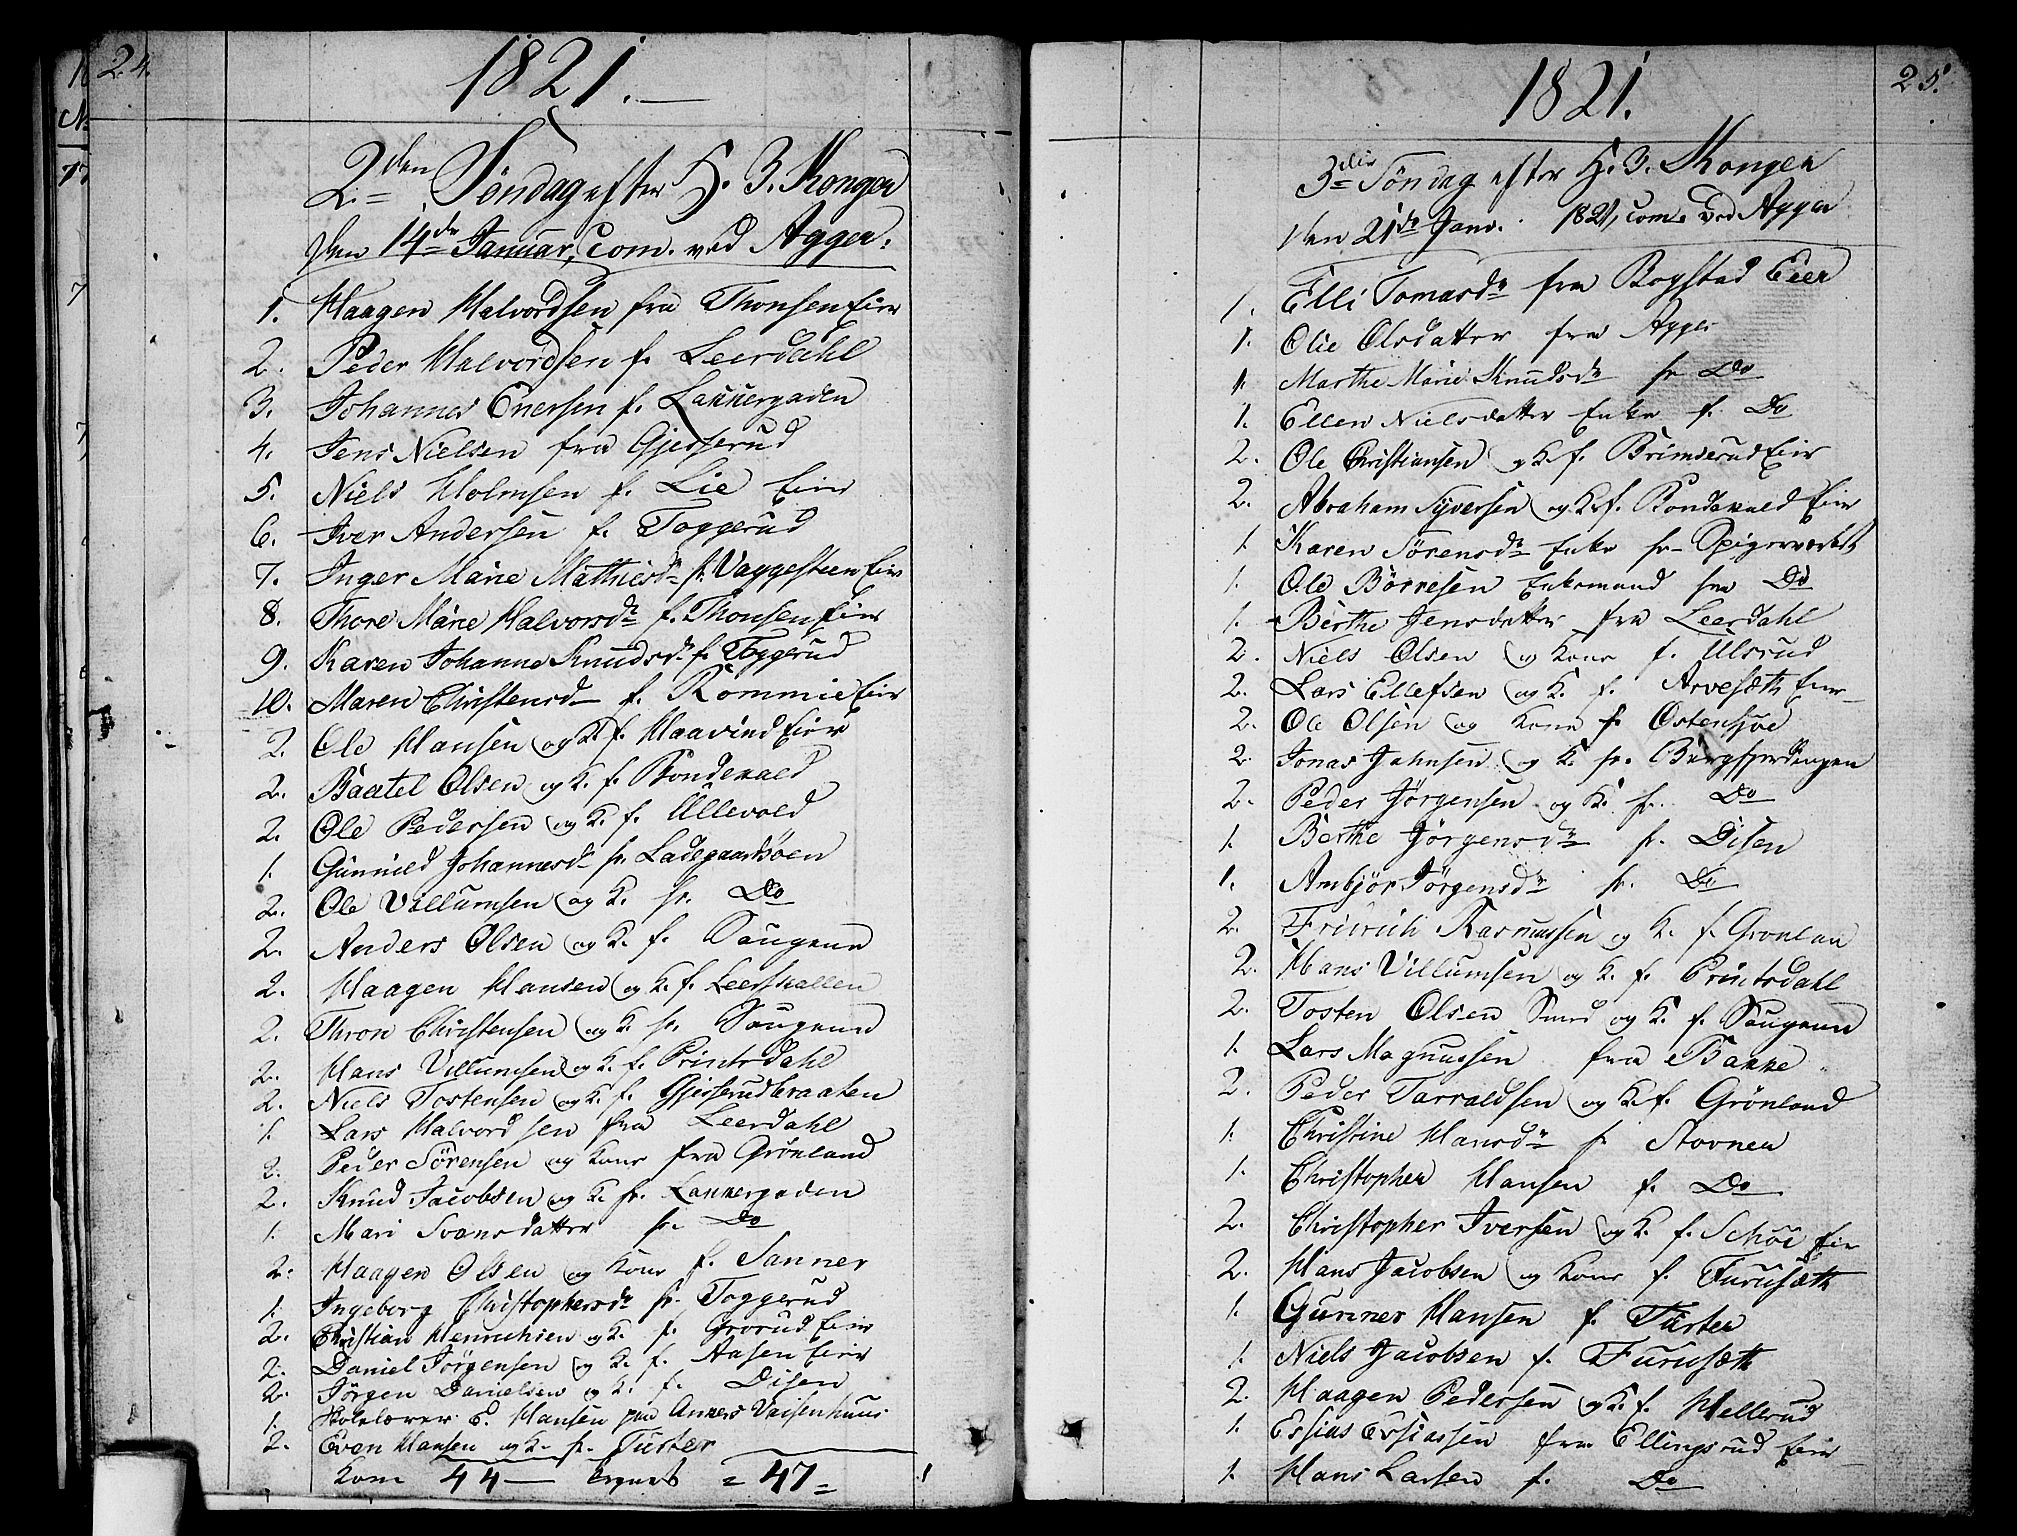 24.
1821.
2den Söndag efter H. 3. Konger
den 14de Januar, Com. ved Agger.
1. Haagen Halvordsen fra Thonsen Eier
2. Peder Halvordsen f. Leerdahl
3. Johannes Enersen f. Lakkergaden
4. Jens Nielsen fra Gjesserud
5. Niels Holmsen f. Lie Eier
6. Iver Andersen f. Toggerud
7. Inger Marie Mathisdr fr. Vaggesteen Eier
8. Thore Marie Halvorsdr f. Thonsen Eier
9. Karen Johanne Knudsdr f. Toggerud
10. Maren Christensd f. Rommie Eier
2. Ole Hansen og K. f. Haavind Eier
2. Baatel Olsen og K. f. Bondekald
2. Ole Pedersen og K. f. Ullevold
1. Gunnild Johannesd fr. Ladegaardsöen
2. Ole Villumsen og K. fr. Do
2. Anders Olsen og K. f. Saugene
2. Haagen Hansen og K. f. Leerskallen
2. Thron Christensen og K. fr. Saugene
2. Hans Villumsen og K. f. Printsdahl
2. Niels Tostensen og K. f. Gjesserudbraaten
1. Lars Halvordsen fra Leerdahl
2. Peder Sörensen og Kone fra Grönland
2. Knud Jacobsen og K. fr. Lakkergaden
1. Mari Svensdatter fr. Do
2. Haagen Olsen og Kone f. Sanner
1. Ingeborg Christophersdr fr. Toggerud
2. Christian Henrichsen og K. f. Grorud Eier
2. Daniel Jörgensen og K. f. Aasen Eier
2. Jörgen Danielsen og K. f. Disen
1. Skolelærer E. Hansen paa Ankers Vaisenhuus
2. Even Hansen og K. fr. Turter
Kom 44 — = 47 =
25.
1821.
3die Söndag efter H. 3. Konger
den 21de Janr. 1821, Com. ved Agger
1. Elli Tomasdr fra Bogstad Eier
1. Olie Olsdatter fra Agger
1. Marthe Marie Knudsdr fr Do
1. Ellen Nielsdatter Enke f. Do
2. Ole Christiansen og K. f. Brimserud Eier
2. Abraham Syversen og K. f. Bondekald Eier
1. Karen Sörensdr Enke fr Spigerverket
1. Ole Börresen Enkemand fra Do
1. Berthe Jensdatter fra Leerdahl
2. Niels Olsen og Kone f. Ulsrud
2. Lars Ellefsen og K. f. Arvesæth Eier
2. Ole Olsen og Kone f. Östensjöe
2. Jonas Johnsen og K. fr. Bergfjerdingen
2. Peder Jörgensen og K. fr. Do
1. Berthe Jörgensdr fr. Disen
1. Ambjör Jörgensdr fr. Do
2. Fridrich Rasmussen og K. f. Gronlan
2. Hans Villumsen og K. f. Printsdahl
2. Tosten Olsen Smed og K. f. Saugene
1. Lars Magnussen fra Bakke
2. Peder Tarraldsen og K. f. Grönland
1. Christine Hansdr f Stovner
1. Christopher Hansen f. Do
2. Christopher Iversen og K. f. Schöe Eier
2. Hans Jacobsen og Kone f. Furusæth
1. Gunner Hansen f. Turter
1. Niels Jacobsen f. Furusæth
2. Haagen Pedersen og K. f. Hellerud
1. Essias Essiassen fra Ellingsrud Eier
1. Hans Larsen f. Do